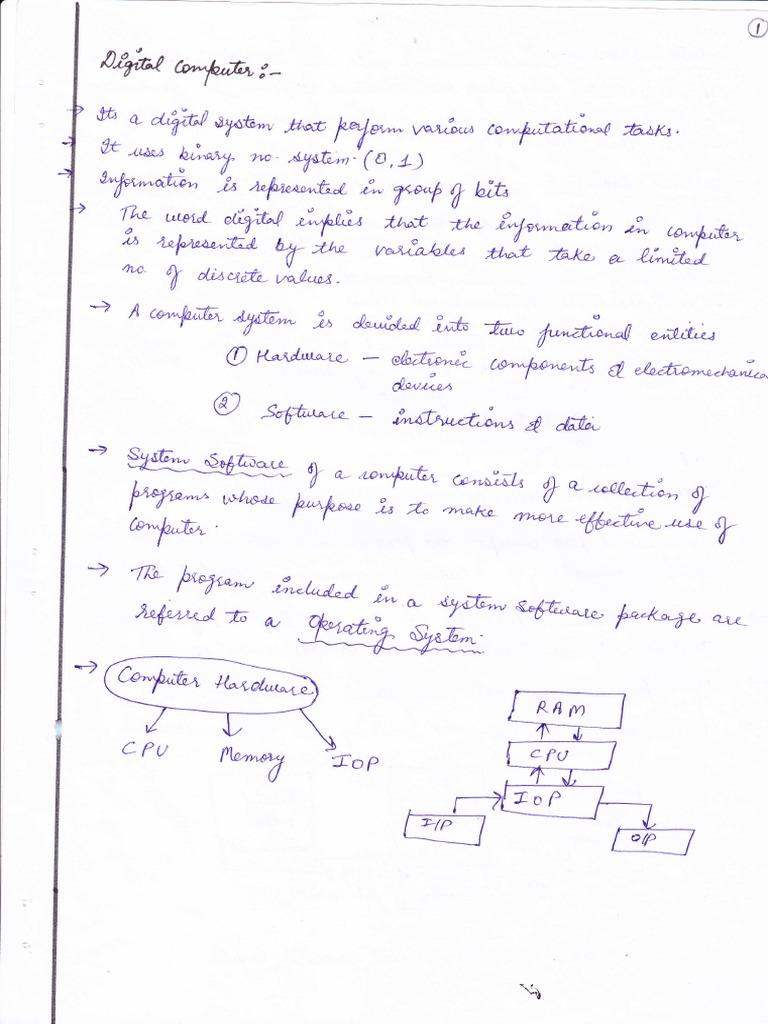 1
Digital Computer :-
→ Its a digital system that perform various computational tasks.
→ It uses binary no. system. (0,1)
→ Information is represented in group of bits
→ The word digital implies that the information in computer
is represented by the variables that take a limited
no. of discrete values.
→ A computer system is devided into two functional entities
① Hardware – electronic components & electromechanical
devices
② Software – instructions & data
→ System Software of a computer consists of a collection of
programs whose purpose is to make more effective use of
computer.
→ The program included in a system software package are
referred to a Operating System.
→ Computer Hardware
CPU Memory IOP
RAM
CPU
IOP
I/P
O/P